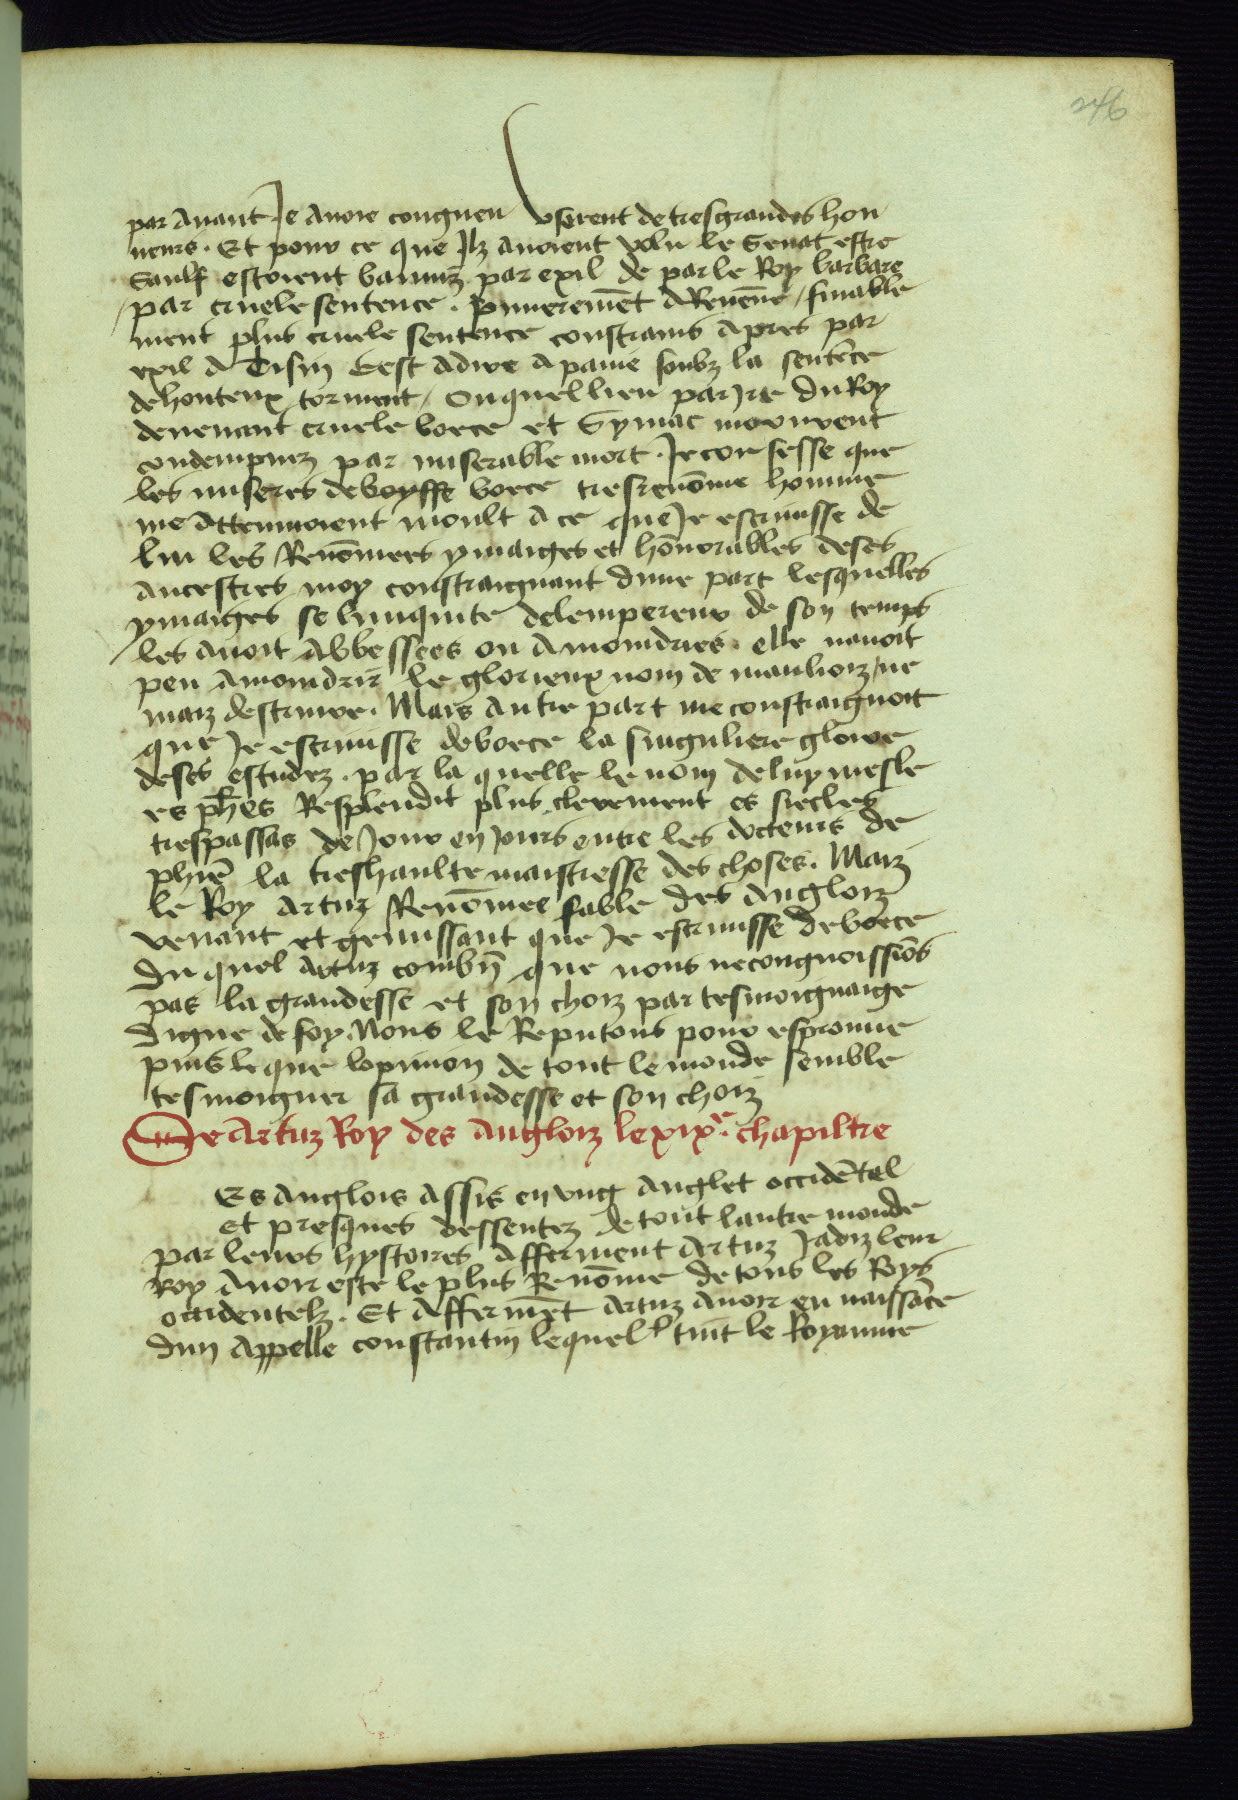 246
par auant Je auoie congneu vserent de tresgrandes hon
neurs. Et pour ce que Jlz auoient volu le Senat estre
Saulf estoient banniz par exil de par le Roy barbare
par cruele sentence. Primieremēt a Reuēne / finable
ment plus cruele sentence constrains apres par
exil a Tisin Cest adire a pauie soubz la sentēce
de honteux torment / Ouquel lieu par Jre du Roy
deuenant cruele boece et Symac mouurent
condempnez par miserable mort. Je confesse que
les miseres de boece tresrenōme homme
me attennoient moult a ce que Je escriuisse de
lui les Renōmees ymaiges et hōnorables de ses
ancestres moy constraignant dune part lesquelles
ymaiges se liniquite de lempereur de son temps
les auoit abbessees ou amoindries. elle nauoit
peu amoindrir le glorieux nom de manlioz / ne
maiz destruire. Mais autre part me constraignoit
que Je escriuisse de boece la singuliere gloire
de ses estudez. par la quelle le nom de luy mesle
es ph̄es Resplendit plus clerement es siecles
trespassas de Jour en Jours entre les docteurs de
phiē la treshaulte maistresse des choses. Maiz
le Roy artuz Renōmee fable des angloiz
venant et gemissant que Je escriuisse de boece
Du quel artuz combiē que nous ne congnoissiōs
pas la grandesse et son choiz par tesmoignaige
digne de foy. Nous le Reputons pour esprouue
puis le que lopinion de tout le monde semble
tesmoigner sa grandesse et son choiz
De Artuz Roy des Angloiz le xixe. chapiltre
Es anglois assis en vng anglet occidētal
et presques dessentez de tout lautre monde
par leurs hystoires afferment artuz Jadiz leur
roy auoir este le plus Renōme de tous les Roys
occidentelz. Et affermēt artuz auoir eu naissāce
dun appelle constantin lequel tint le Royaume